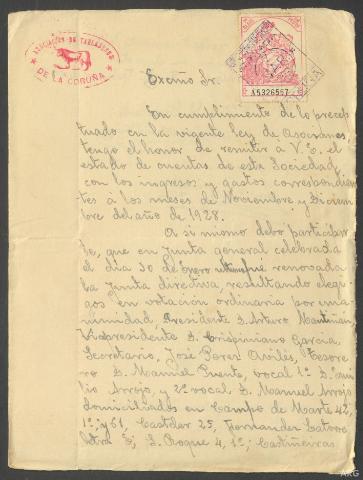 ASOCIACIÓN DE TABLAJEROS
DE LA CORUÑA
A5326557
Excmo Sr.
En cumplimiento de lo precep
tuado en la vigente ley de Asociaciones
tengo el honor de remitir a V. E. el
estado de cuentas de esta Sociedad,
con los ingresos y gastos correspondien
tes a los meses de Noviembre y Diciem
bre del año de 1928.
A si mismo debo participar
le, que en Junta general celebrada
el dia 30 de enero fué renovada
la Junta directiva, resultando elegi
dos en votación ordinaria por una
nimidad Presidente D. Arturo
Vicepresidente D. Crisermiano Garcia
Secretario, Jose Perez Aviles, Tesore
ro D. Manuel Puente, vocal 1º D.
lio Arrojo, y 2º vocal D. Manuel Arrojo
domiciliados en Campo de Marte 42,
1º; y 61, Castelar 25, Fernandez Latorre
letra S. Roque 4, 1º; Castiñeiras
ARG